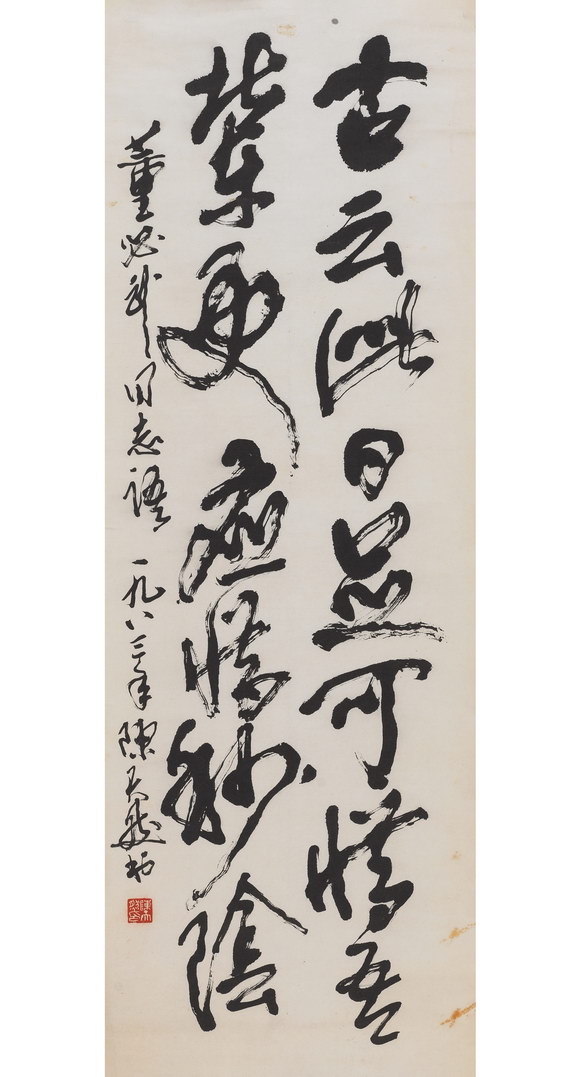 古云此日足可惜吾
輩更應惜秒陰
董必武同志語 一九八三年 陳天然书